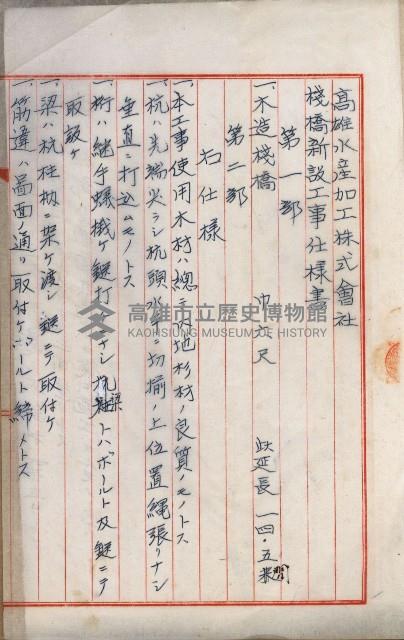 高雄水産加工株式會社
棧橋新設工事仕様書
第一部
一、木造棧橋 巾六尺 此延長 一四・五米
第二部
右仕様
一、本工事使用木材ハ總テ内地杉材ノ良質ノモノトス
一、杭ハ先端尖ラシ杭頭水平ニ切揃ノ上位置縄張リナシ
垂直ニ打込ムモノトス
一、桁ハ継手蟻掛ケ鎹打ナシ 梁トハボールト及鎹ニテ
取設ケ
一、梁ハ杭柱枘ニ架ケ渡シ鎹ニテ取付ケ
一、筋違ハ圖面ノ通リ取付ケボールト締メトス
高雄市立歷史博物館
KAOHSIUNG MUSEUM OF HISTORY